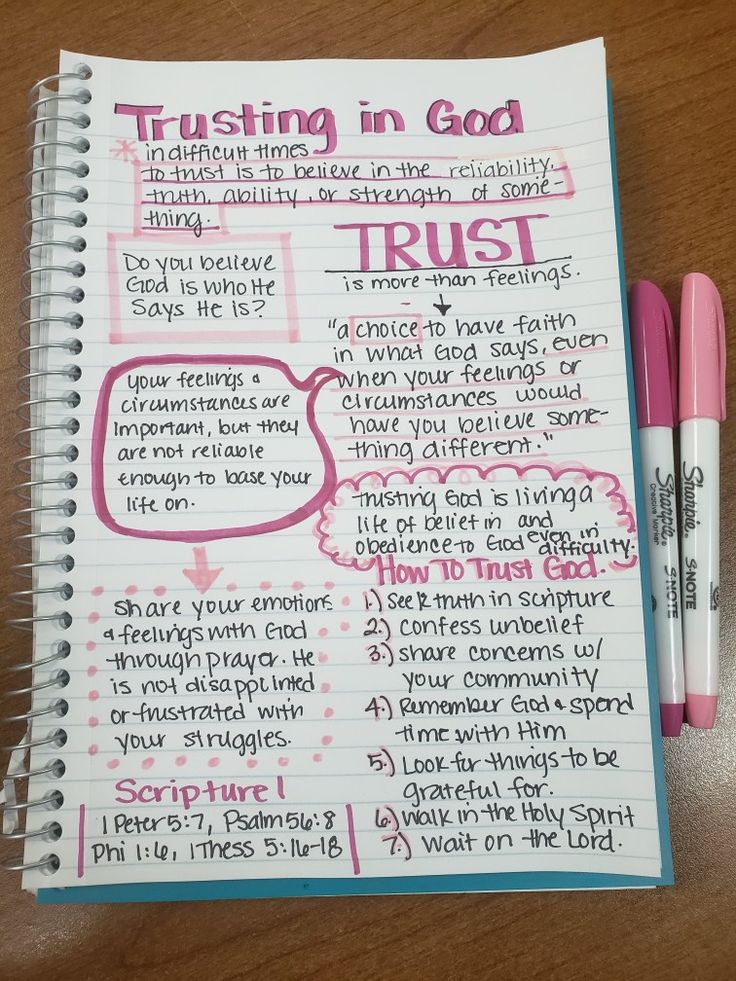 Trusting in God
* in difficult times
to trust is to believe in the reliability,
truth, ability, or strength of some-
thing.
Do you believe
God is who He
Says He is?
TRUST
is more than feelings.
"a choice to have faith
in what God says, even
when your feelings or
circumstances would
have you believe some-
thing different."
Your feelings &
circumstances are
important, but they
are not reliable
enough to base your
life on.
trusting God is living a
life of belief in and
obedience to God even in
difficulty.
Share your emotions
& feelings with God
through prayer. He
is not disappointed
or frustrated with
your struggles.
How To Trust God.
1.) Seek truth in scripture
2.) confess unbelief
3.) share concerns w/
your community
4.) Remember God & spend
time with Him
5.) Look for things to be
grateful for.
6.) walk in the Holy Spirit
7.) wait on the Lord.
Scripture!
1 Peter 5:7, Psalm 56:8
Phi 1:6, 1 Thess 5:16-18
Sharpie
Creative Marker
S-NOTE
Sharpie
S-NOTE